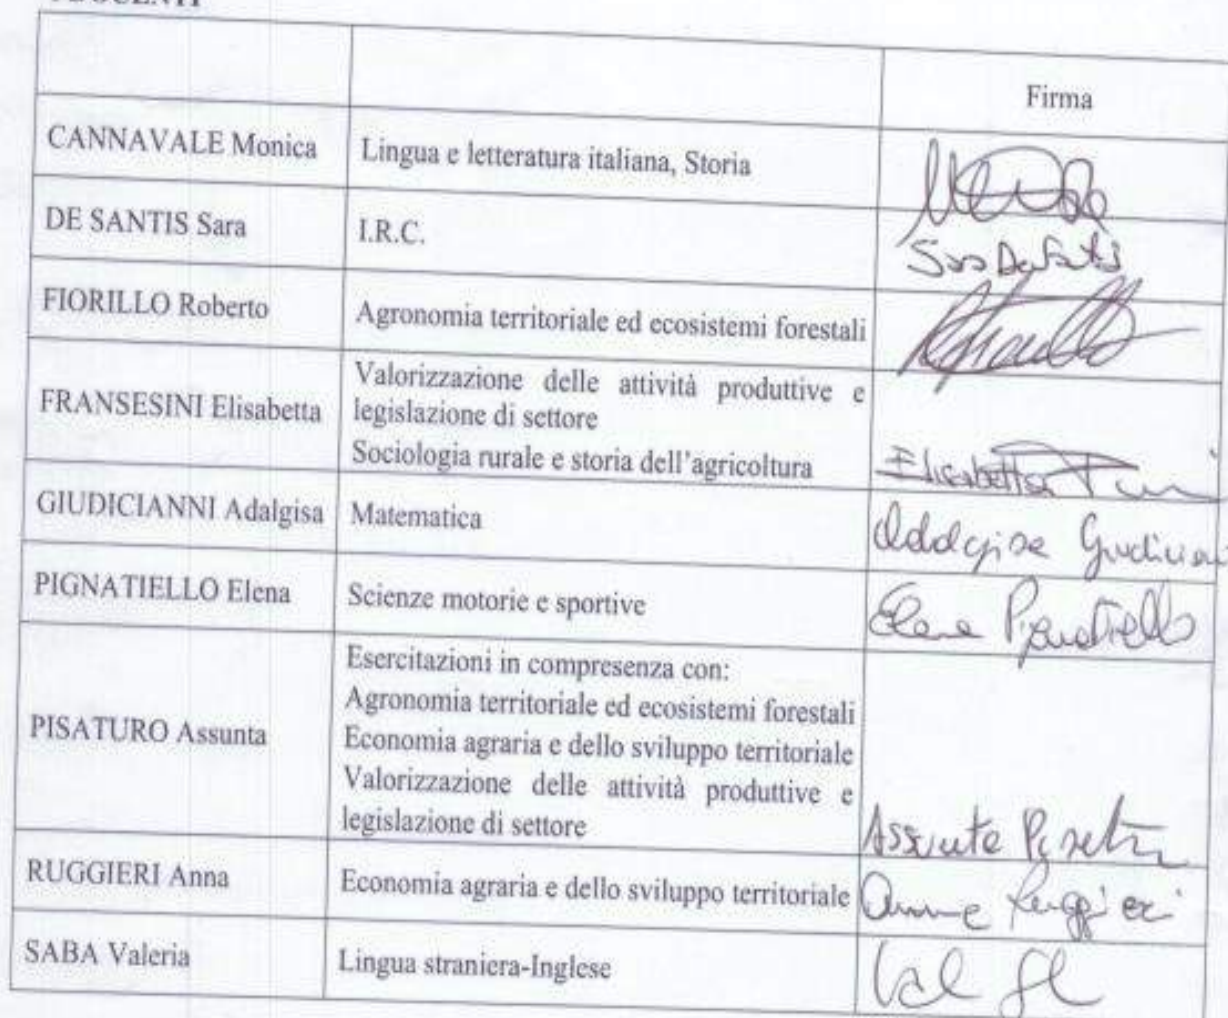 Firma
CANNAVALE Monica
Lingua e letteratura italiana, Storia
DE SANTIS Sara
I.R.C.
FIORILLO Roberto
Agronomia territoriale ed ecosistemi forestali
FRANSESINI Elisabetta
Valorizzazione delle attività produttive e
legislazione di settore
Sociologia rurale e storia dell'agricoltura
Elisabetta
GIUDICIANNI Adalgisa
Matematica
Adalgisa
PIGNATIELLO Elena
Scienze motorie e sportive
Elena Pignatiello
PISATURO Assunta
Esercitazioni in compresenza con:
Agronomia territoriale ed ecosistemi forestali
Economia agraria e dello sviluppo territoriale
Valorizzazione delle attività produttive e
legislazione di settore
Assunta
RUGGIERI Anna
Economia agraria e dello sviluppo territoriale
Anna Ruggieri
SABA Valeria
Lingua straniera-Inglese